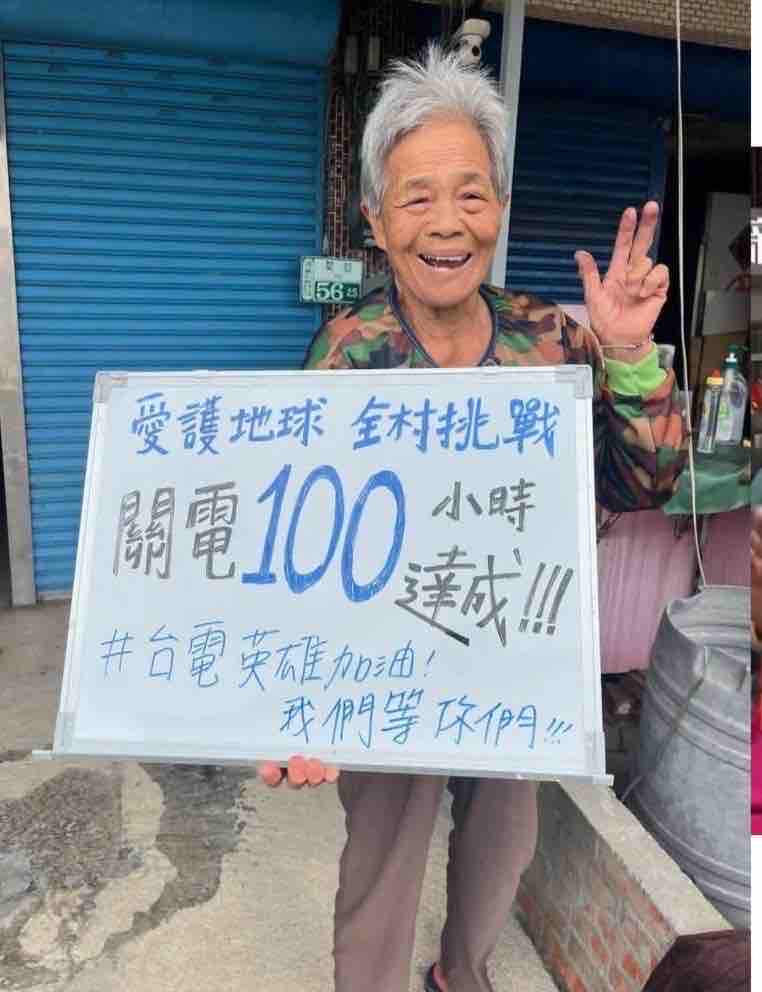 56
愛護地球 全村挑戰
關電100小時
達成!!!
#台電英雄加油!
我們等你們!!!